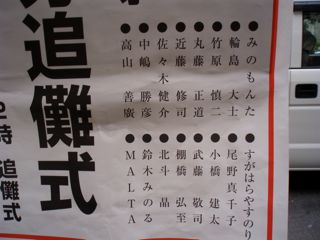 追儺式
2時 追儺式
●みのもんた
●輪島 大士
●竹原 慎二
●丸藤 正道
●近藤 修司
●佐々木 健介
●中嶋 勝彦
●高山 善廣
●すがはらやすのり
●尾野真千子
●小橋 建太
●武藤 敬司
●棚橋 弘至
●北斗 晶
●鈴木みのる
●MALTA